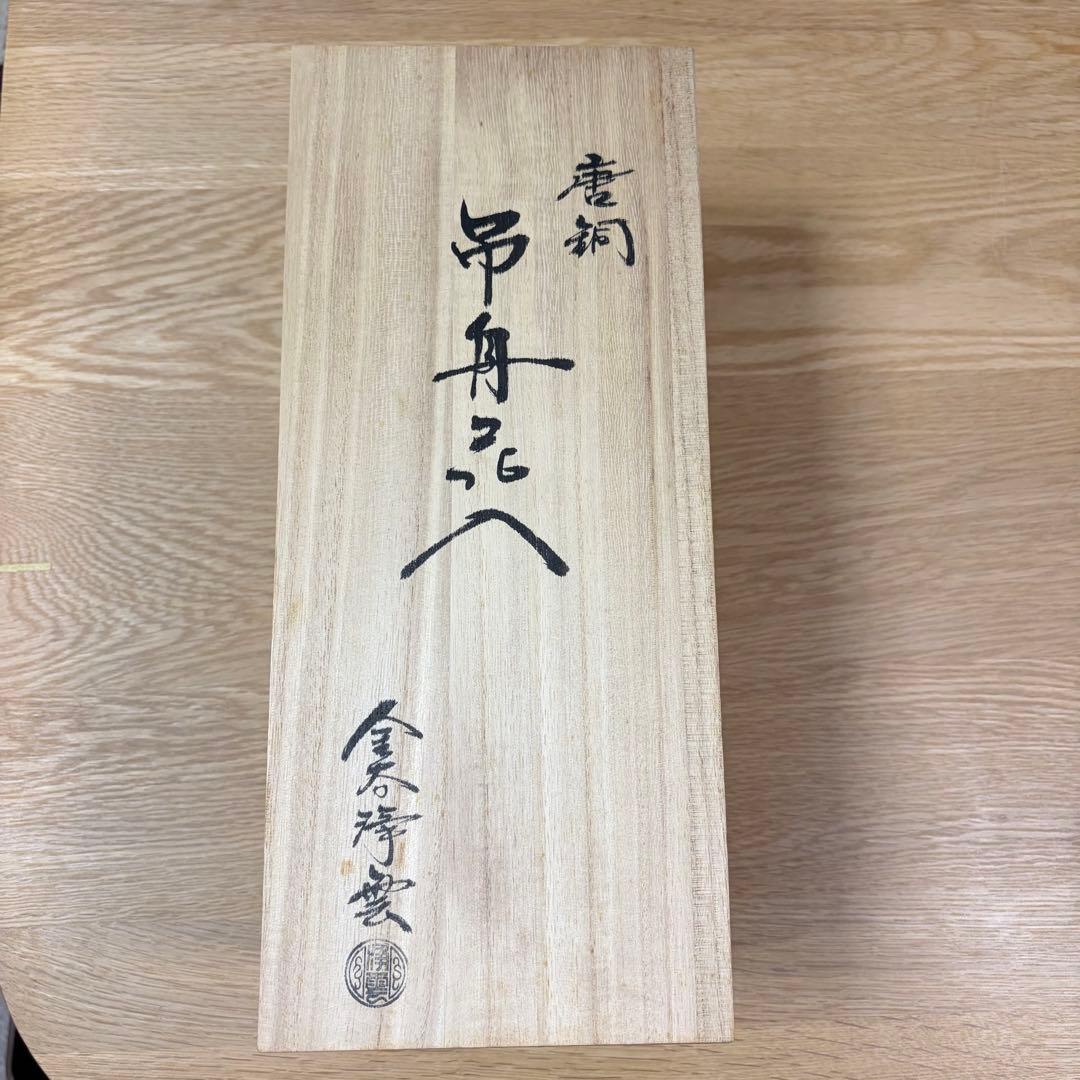 唐銅
吊舟花入
金谷浄雲
浄雲